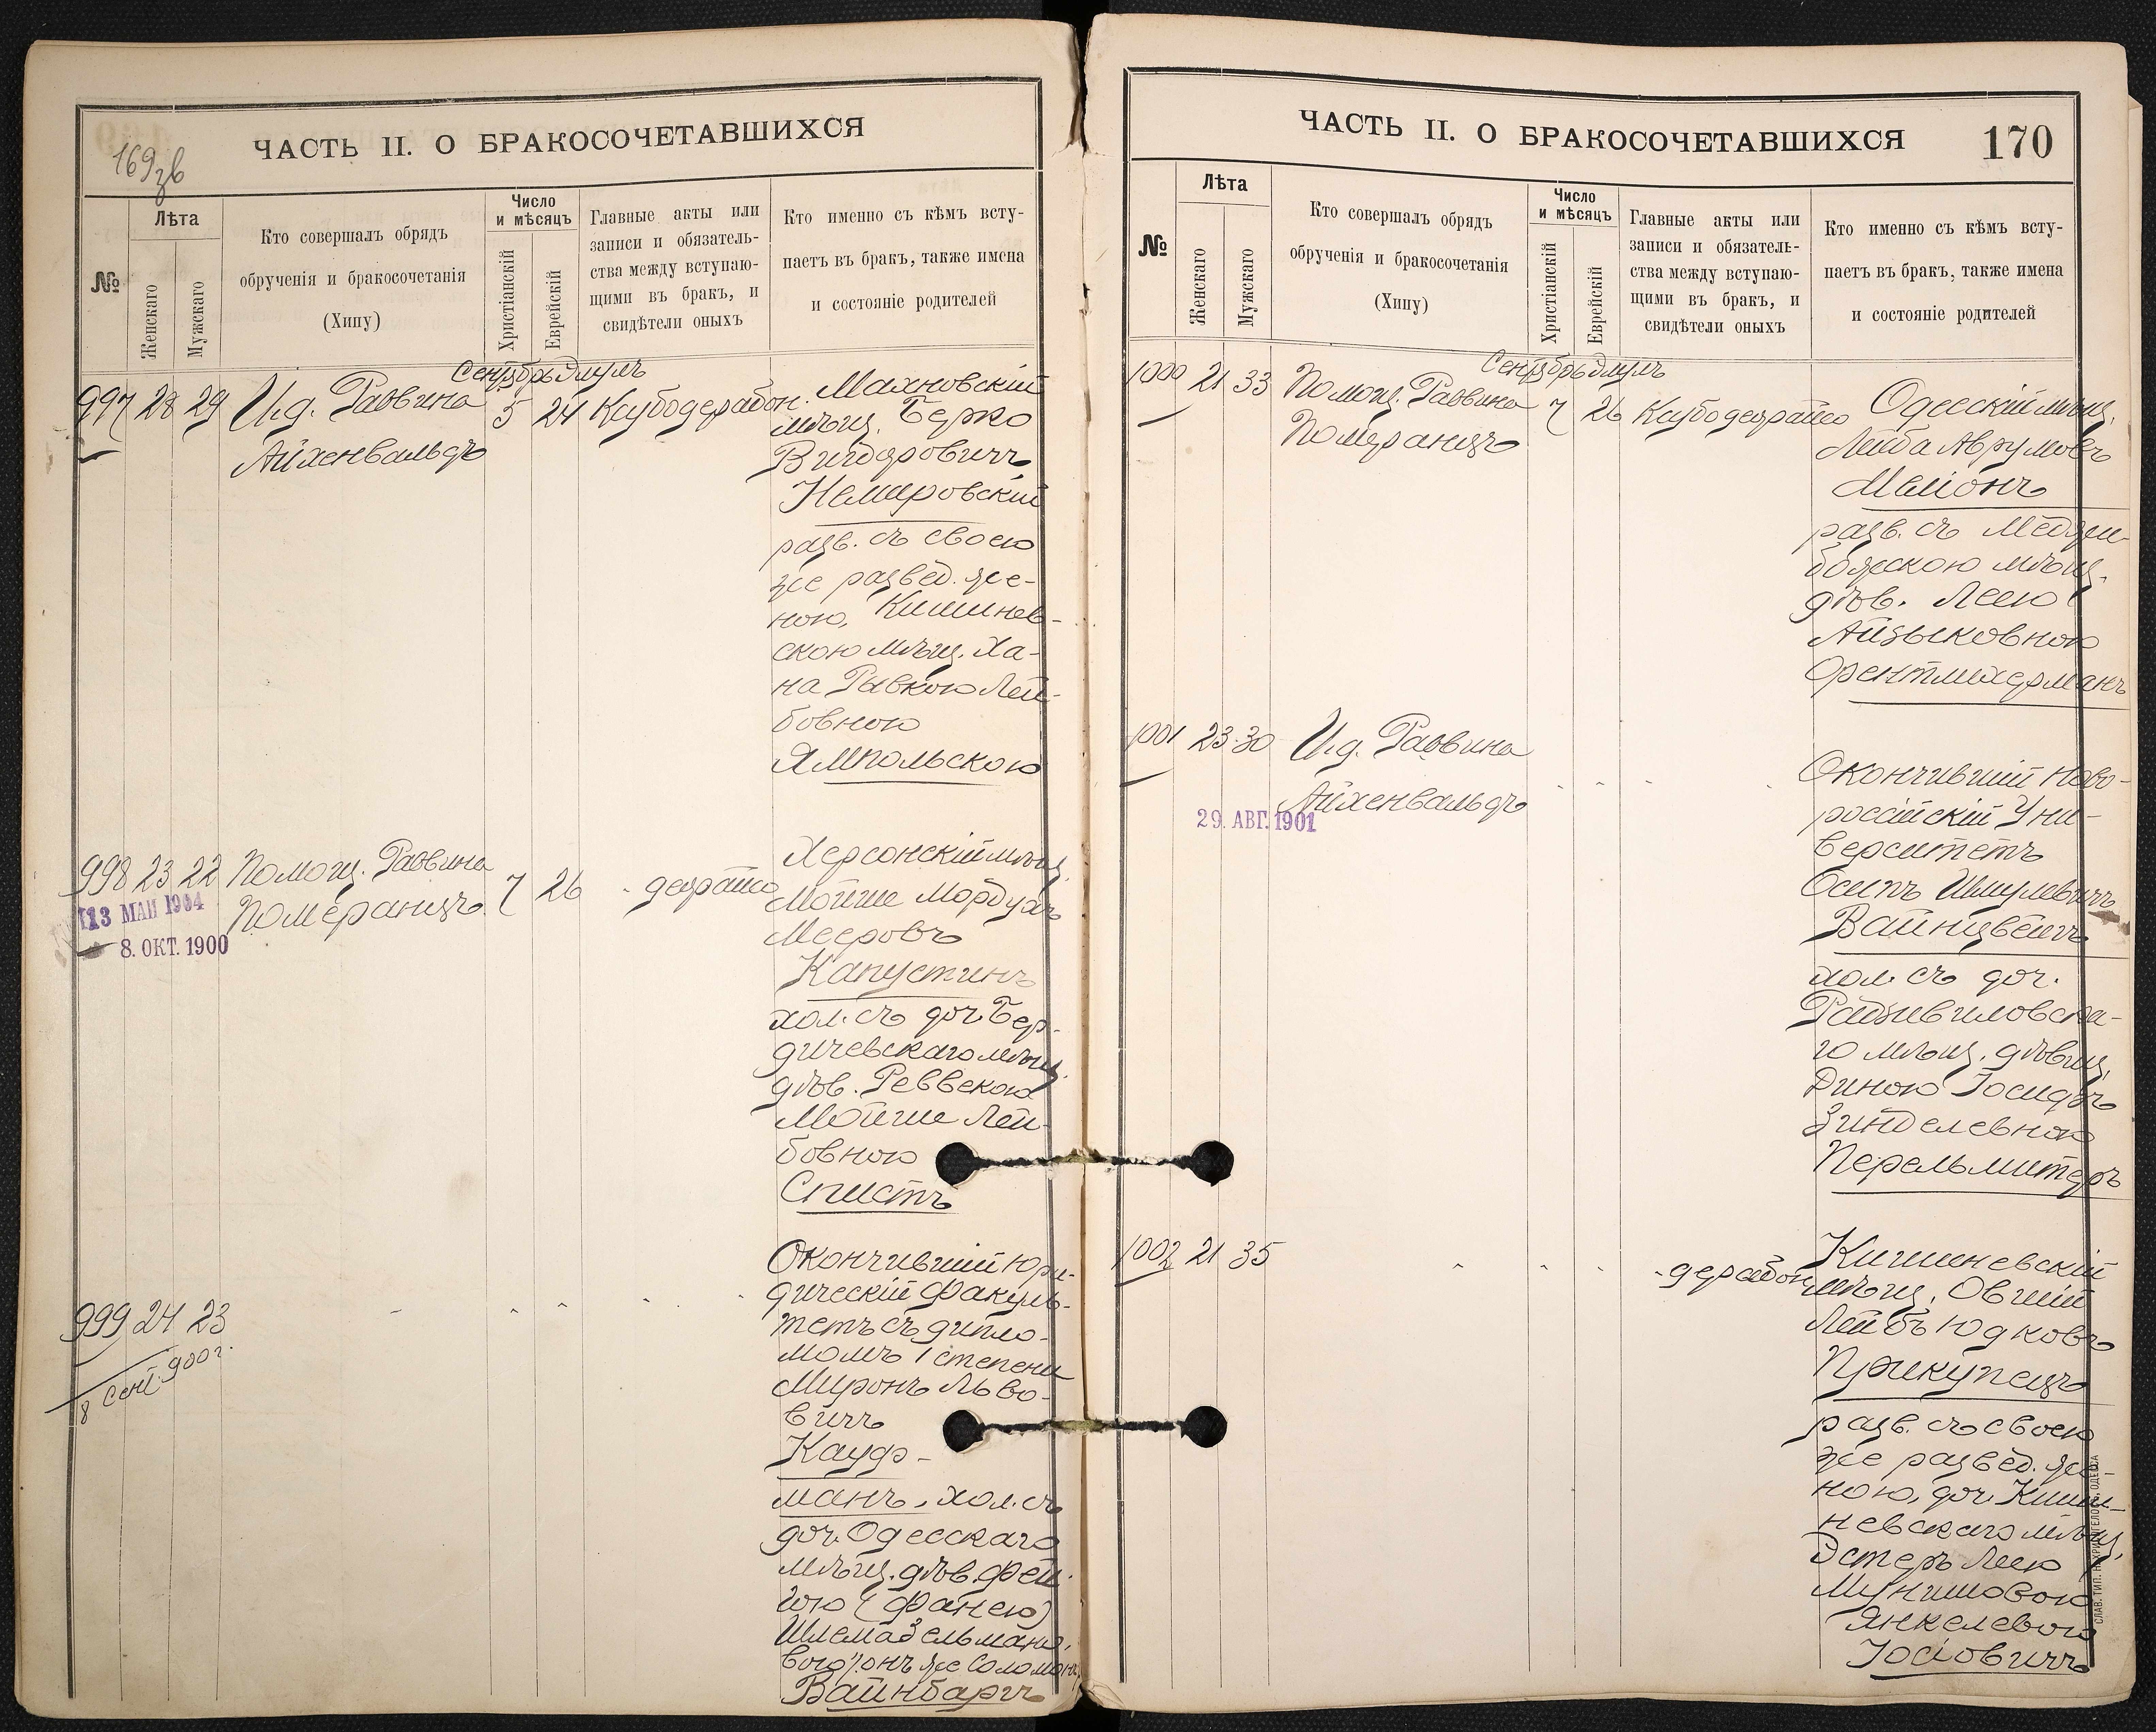 ЧАСТЬ II. О БРАКОСОЧЕТАВШИХСЯ
169 зв
№
Лѣта
Женскаго
Мужскаго
Кто совершалъ обрядъ
обрученія и бракосочетанія
(Хипу)
Число
и мѣсяцъ
Христіанскій
Еврейскій
Главные акты или
записи и обязатель-
ства между вступаю-
щими въ бракъ, и
свидѣтели оныхъ
Кто именно съ кѣмъ всту-
паетъ въ бракъ, также имена
и состояніе родителей
Сентябрь Элулъ
997 28 29 И.д. Раввина 5 24
Айхенвальдъ
Махновскій
мѣщ. Берко
Вигдоровичъ
Немировскій
разв. съ своею
же развед. же-
ною, Кишинев-
скою мѣщ. Ха-
на Рывкою Лей-
бовною
Ямпольскою
998 23 22 Помощ. Раввина 7 26
Померанцъ
13 МАЙ 1904
8. ОКТ. 1900
Херсонскій мѣщ.
Мойше Мордухъ
Мееровъ
Капустинъ
хол. съ доч. Бер-
дичевскаго мѣщ.
дѣв. Реввекою
Мойше Лей-
бовною
Спистъ
999 24 23
8 сент. 900 г.
Окончившій Юри-
дическій Факуль-
тетъ съ дипло-
момъ 1 степени
Миронъ Льво-
вичъ
Кауф-
манъ, хол. съ
доч. Одесскаго
мѣщ. дѣв. Фей-
гою (Фанею)
Шлема Зельмано-
вою онъ же Соломонъ
Вайнбаргъ
ЧАСТЬ II. О БРАКОСОЧЕТАВШИХСЯ
170
№
Лѣта
Женскаго
Мужскаго
Кто совершалъ обрядъ
обрученія и бракосочетанія
(Хипу)
Число
и мѣсяцъ
Христіанскій
Еврейскій
Главные акты или
записи и обязатель-
ства между вступаю-
щими въ бракъ, и
свидѣтели оныхъ
Кто именно съ кѣмъ всту-
паетъ въ бракъ, также имена
и состояніе родителей
Сентябрь Элулъ
1000 21 33 Помощ. Раввина 7 26
Померанцъ
Одесскій мѣщ.
Лейба Аврумовъ
Меіонъ
разв. съ Медзи-
божскою мѣщ.
дѣв. Леею
Айзыковною
Орентлихерманъ
1001 23 30 И.д. Раввина
Айхенвальдъ
29. АВГ. 1901
Окончившій Ново-
россійскій Уни-
верситетъ
Осипъ Шмулевичъ
Вайнцвейгъ
хол. съ доч.
Радзивиловска-
го мѣщ. дѣвиц.
Диною Іосифъ
Зинделевною
Перельмитеръ
1002 21 35
Кишиневскій
мѣщ. Овшій
Лейбъ Юдковъ
Прикупецъ
разв. съ своею
же развед. же-
ною, доч. Киши-
невскаго мѣщ.
Эстеръ Леею
Мунишовою
Янкелевою
Іосіовичъ
СЛАВ. ТИП. Н. ХРИСОГЕЛОСЪ, ОДЕССА